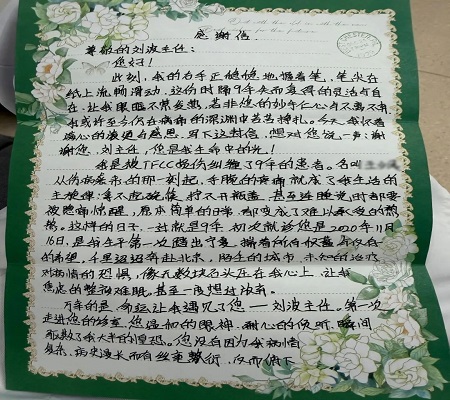 感谢信
尊敬的刘波主任：
您好！
此刻，我的右手正稳稳地握着笔，笔尖在
纸上流畅滑动，这份时隔9年失而复得的灵活与自
在，让我眼眶不禁发热，若非您的妙手仁心
我或许至今仍在病痛的深渊中苦苦挣扎。今天，我怀着
满心的激动与感恩，写下这封信，想对您说一声：谢
谢您，刘主任，您是我生命中的光！
我是被TFCC损伤纠缠了9年的患者。名叫
从伤病袭来的那一刻起，手腕的疼痛就成了我生活的
主旋律：拿不起碗筷，拧不开瓶盖，甚至连睡觉时都要
被疼痛惊醒，原本简单的日常，都变成了难以承受的煎
熬。这样的日子，一过就是9年，初次就诊您是2020年11月
16日，是我生平第一次踏出宁夏，揣着所有积蓄
的希望，千里迢迢奔赴北京，陌生的城市，未知的治疗
对病情的恐惧，像无数块石头压在我心上，让我
焦虑的整夜难眠。甚至一度想过放弃。
万幸的是，命运让我遇见了您——刘波主任。第一次
走进您的诊室，您温和的眼神，耐心的倾听，瞬间
驱散了我大半的惶恐。您没有因为我病情
复杂、病史漫长而有丝毫敷衍，反而俯下